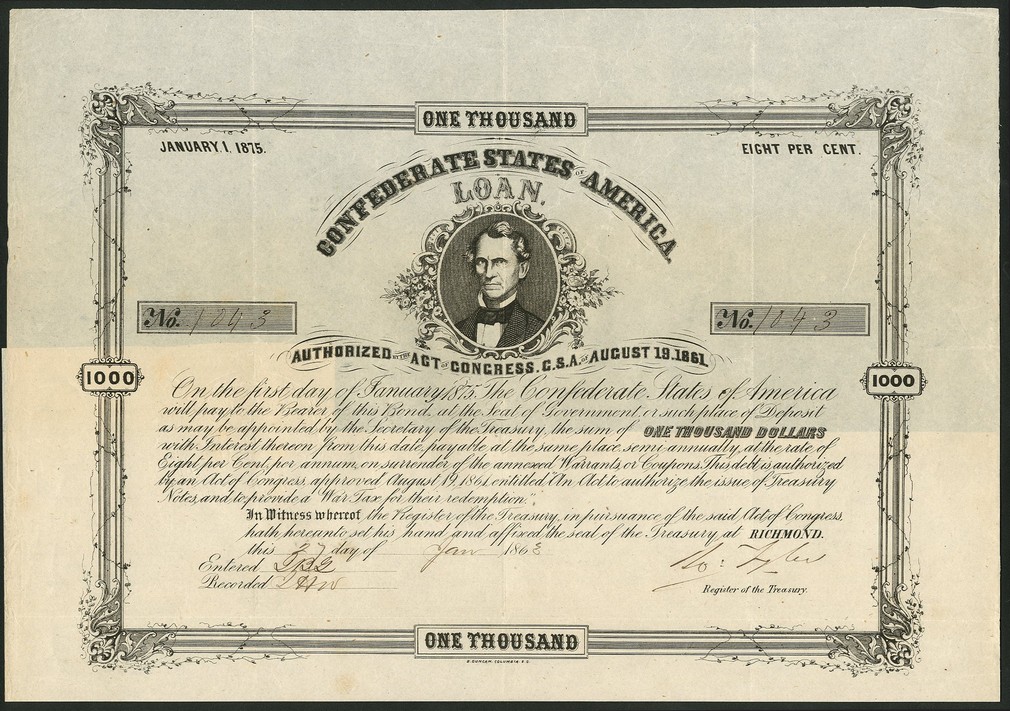 ONE THOUSAND
JANUARY 1. 1875.
EIGHT PER CENT.
CONFEDERATE STATES OF AMERICA
LOAN.
No. 1043
No. 1043
AUTHORIZED BY THE ACT OF CONGRESS. C.S.A. OF AUGUST 19. 1861.
1000
1000
On the first day of January 1875 The Confederate States of America
will pay to the Bearer of this Bond, at the Seat of Government, or such place of Deposit
as may be appointed by the Secretary of the Treasury, the sum of ONE THOUSAND DOLLARS
with Interest thereon from this date, payable at the same place, semi-annually, at the rate of
Eight per Cent, per annum, on surrender of the annexed Warrants or Coupons. This debt is authorized
by an Act of Congress, approved August 19, 1861, entitled "An Act to authorize the issue of Treasury
Notes, and to provide a War Tax for their redemption."
In Witness whereof the Register of the Treasury, in pursuance of the said Act of Congress,
hath hereunto set his hand and affixed the seal of the Treasury at RICHMOND.
this 27 day of Jan 1863
Entered
Recorded
Ro: Tyler
Register of the Treasury.
ONE THOUSAND
B. DUNCAN, COLUMBIA. S.C.